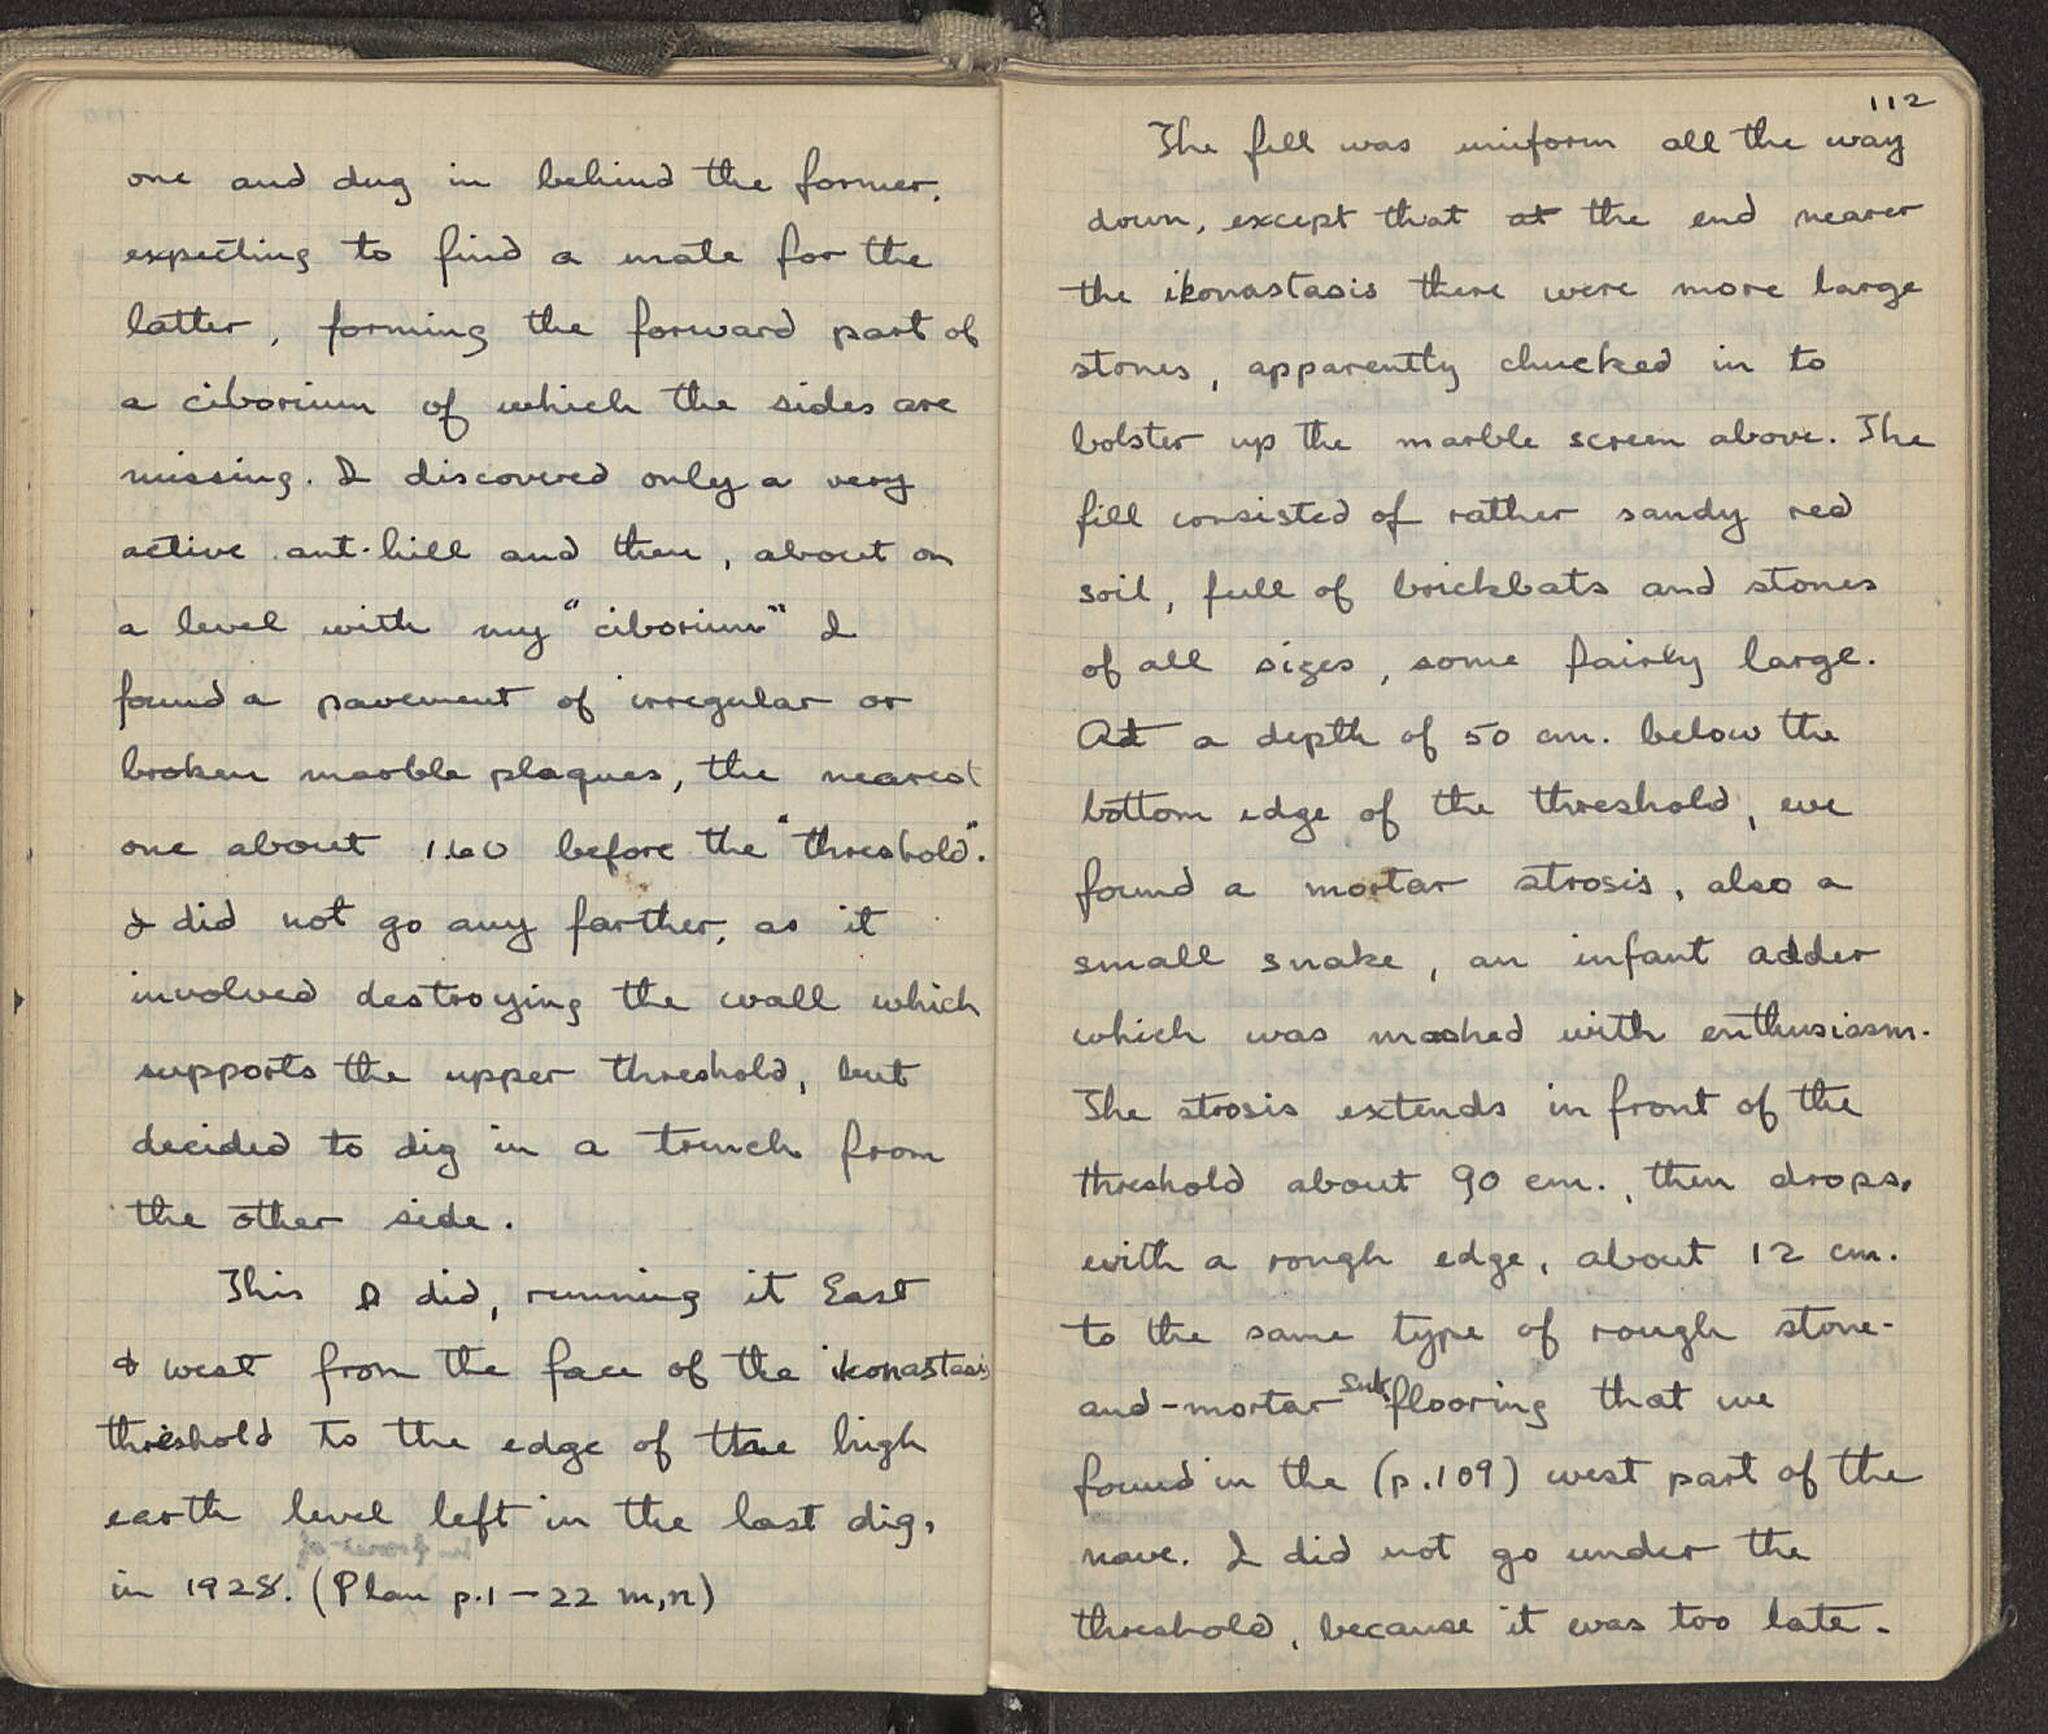 one and dug in behind the former,
expecting to find a mate for the
latter, forming the forward part of
a ciborium of which the sides are
missing. I discovered only a very
active ant-hill and then, about on
a level with my "ciborium" I
found a pavement of irregular or
broken marble plaques, the nearest
one about 1.60 before the "threshold".
I did not go any farther, as it
involved destroying the wall which
supports the upper threshold, but
decided to dig in a trench from
the other side.
This I did, running it East
& west from the face of the ikonastasis
threshold to the edge of the high
earth level left in the last dig,
in 1928. (Plan p.1 - 22 m,n)
112
The fill was uniform all the way
down, except that at the end nearer
the ikonastasis there were more large
stones, apparently chucked in to
bolster up the marble screen above. The
fill consisted of rather sandy red
soil, full of brickbats and stones
of all sizes, some fairly large.
At a depth of 50 cm. below the
bottom edge of the threshold, we
found a mortar strosis, also a
small snake, an infant adder
which was mashed with enthusiasm.
The strosis extends in front of the
threshold about 90 cm., then drops,
with a rough edge, about 12 cm.
to the same type of rough stone-
and-mortar sub-flooring that we
found in the (p.109) west part of the
nave. I did not go under the
threshold, because it was too late.